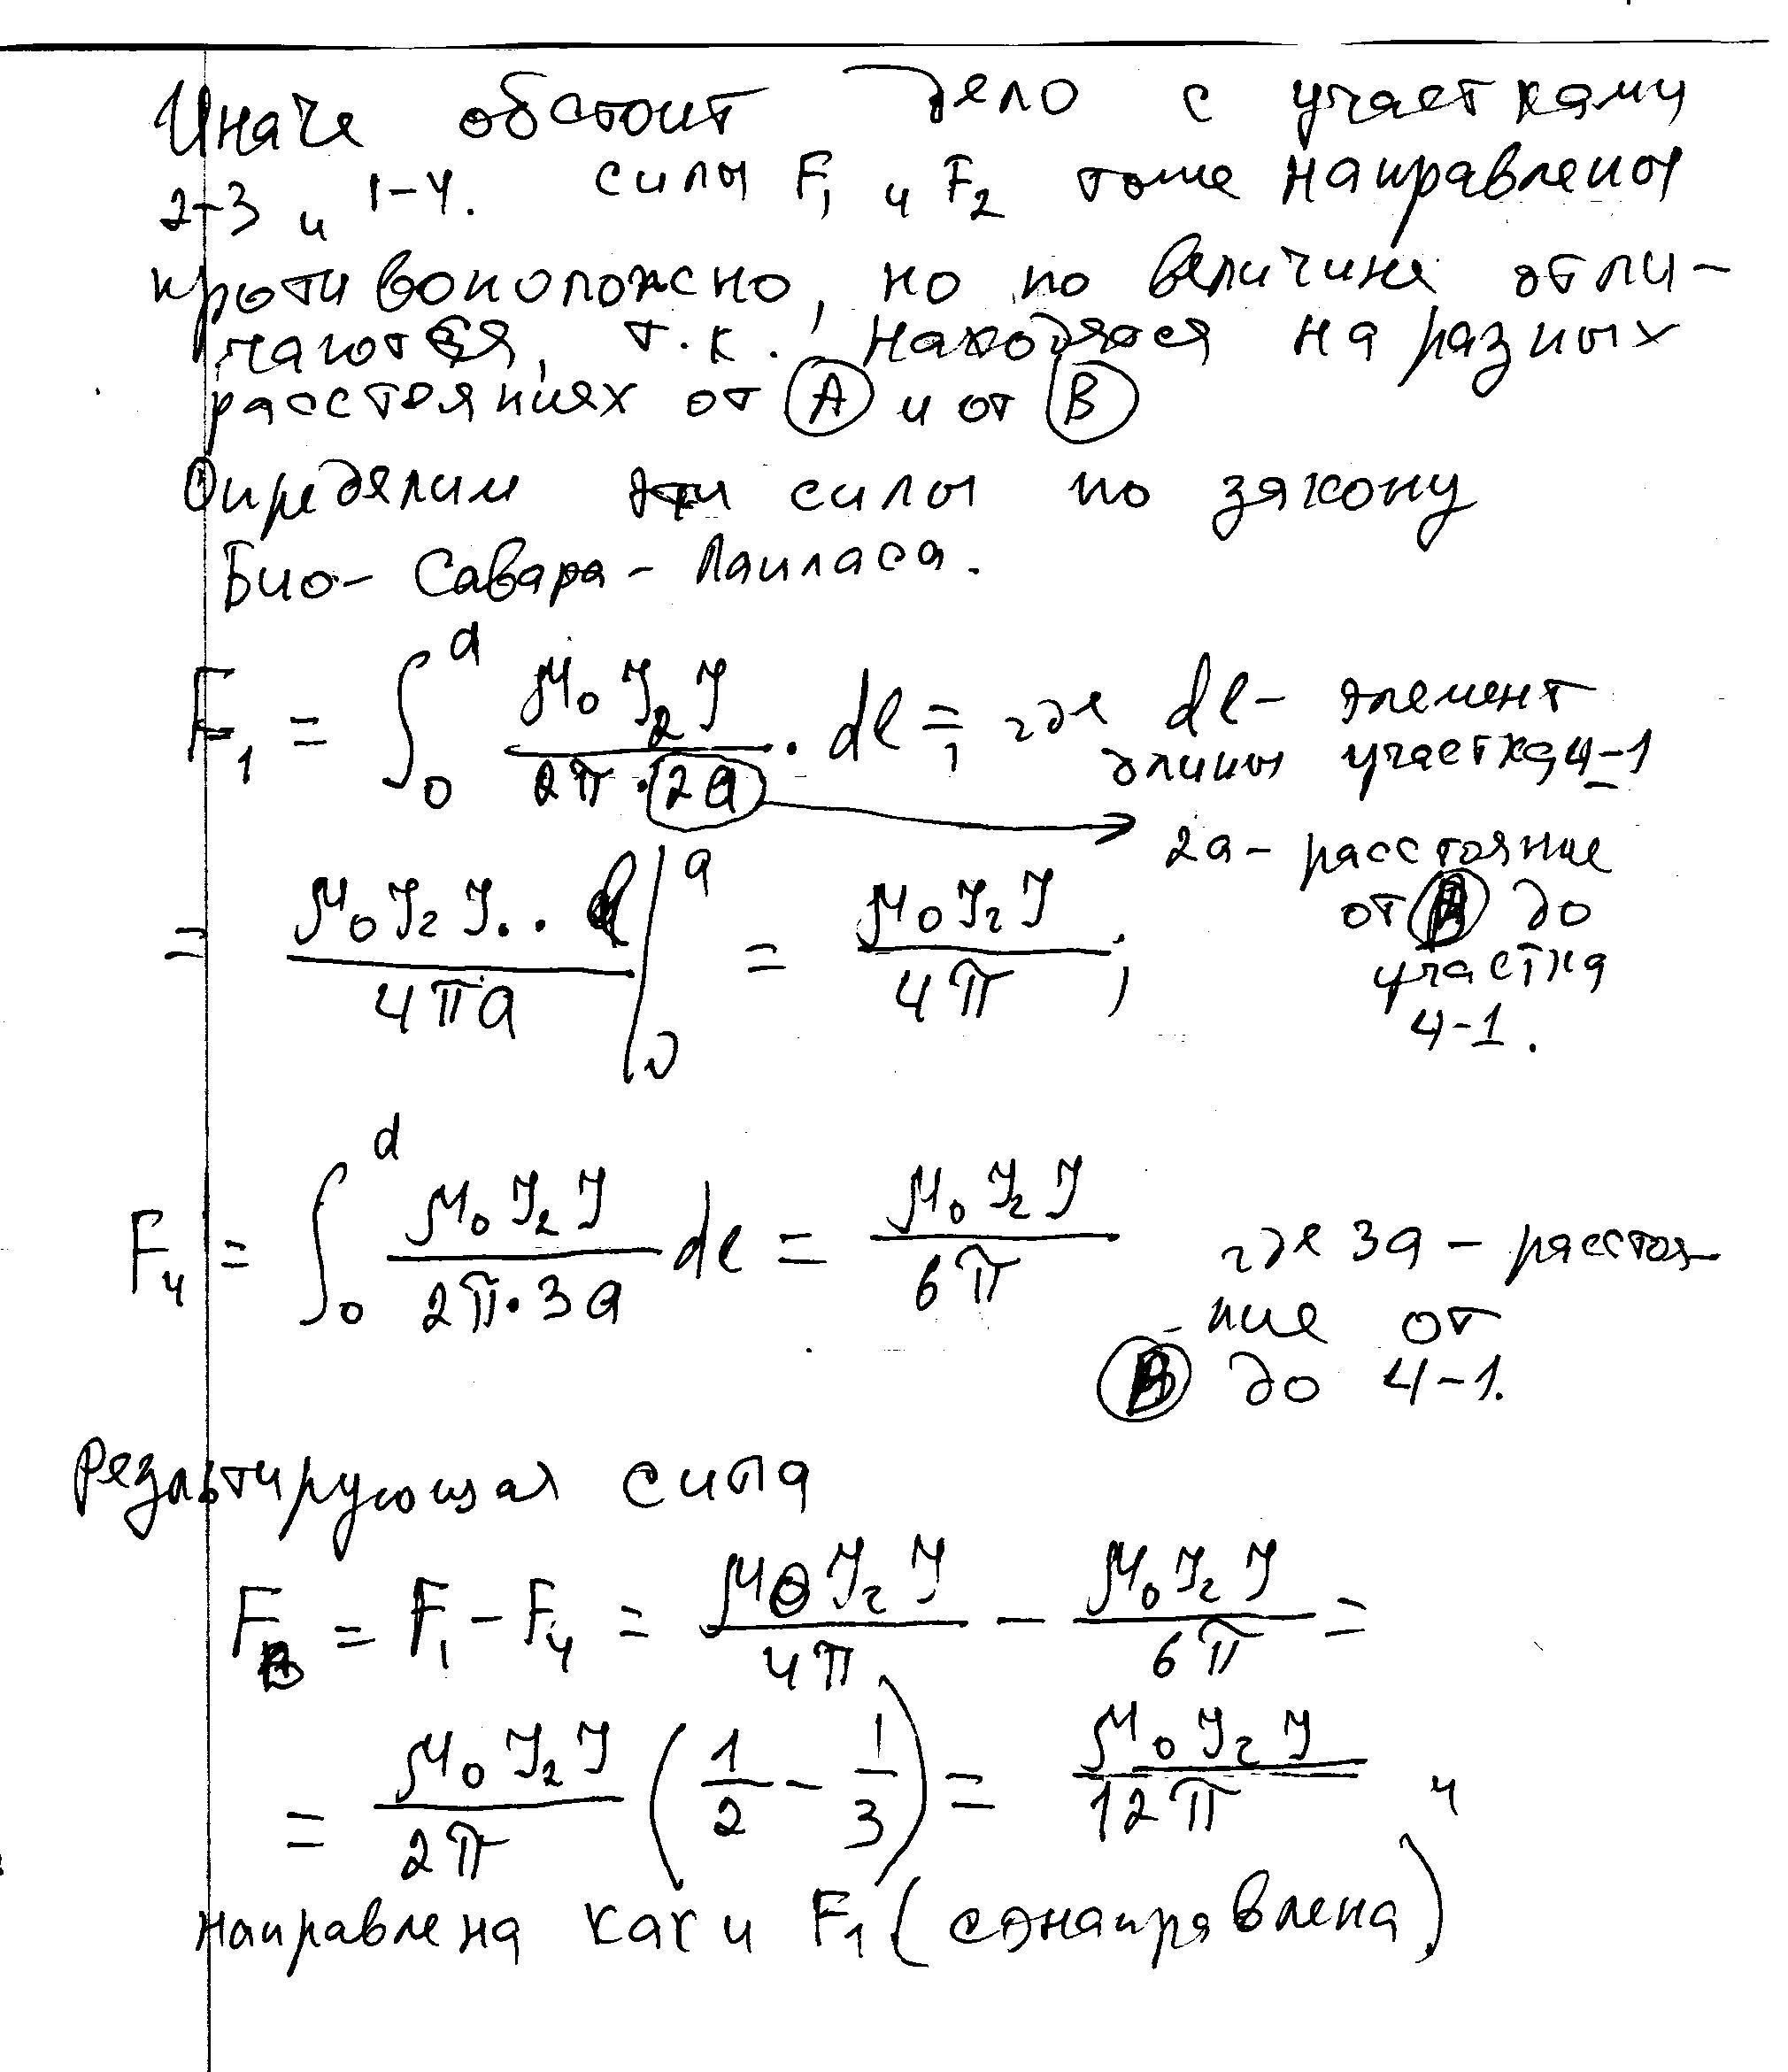 Иначе обстоит дело с участками
2-3 и 1-4. силы F₁ и F₂ тоже направлены
противоположно, но по величине отли-
чаются, т.к. находятся на разных
расстояниях от (A) и от (B)
Определим эти силы по закону
Био-Савара-Лапласа.
F₁ = ∫₀ᵃ μ₀ I₂ I / 2π·2a · dl =, где dl - элемент
длины участка 4-1
2a - расстояние
от (B) до
участка
4-1.
= μ₀ I₂ I · l / 4πa |₀ᵃ = μ₀ I₂ I / 4π ;
F₄ = ∫₀ᵃ μ₀ I₂ I / 2π·3a dl = μ₀ I₂ I / 6π где 3a - расстоя-
ние от
(B) до 4-1.
Результирующая сила
F_B = F₁ - F₄ = μ₀ I₂ I / 4π - μ₀ I₂ I / 6π =
= μ₀ I₂ I / 2π (1/2 - 1/3) = μ₀ I₂ I / 12π и
направлена как и F₁ (сонаправлена)